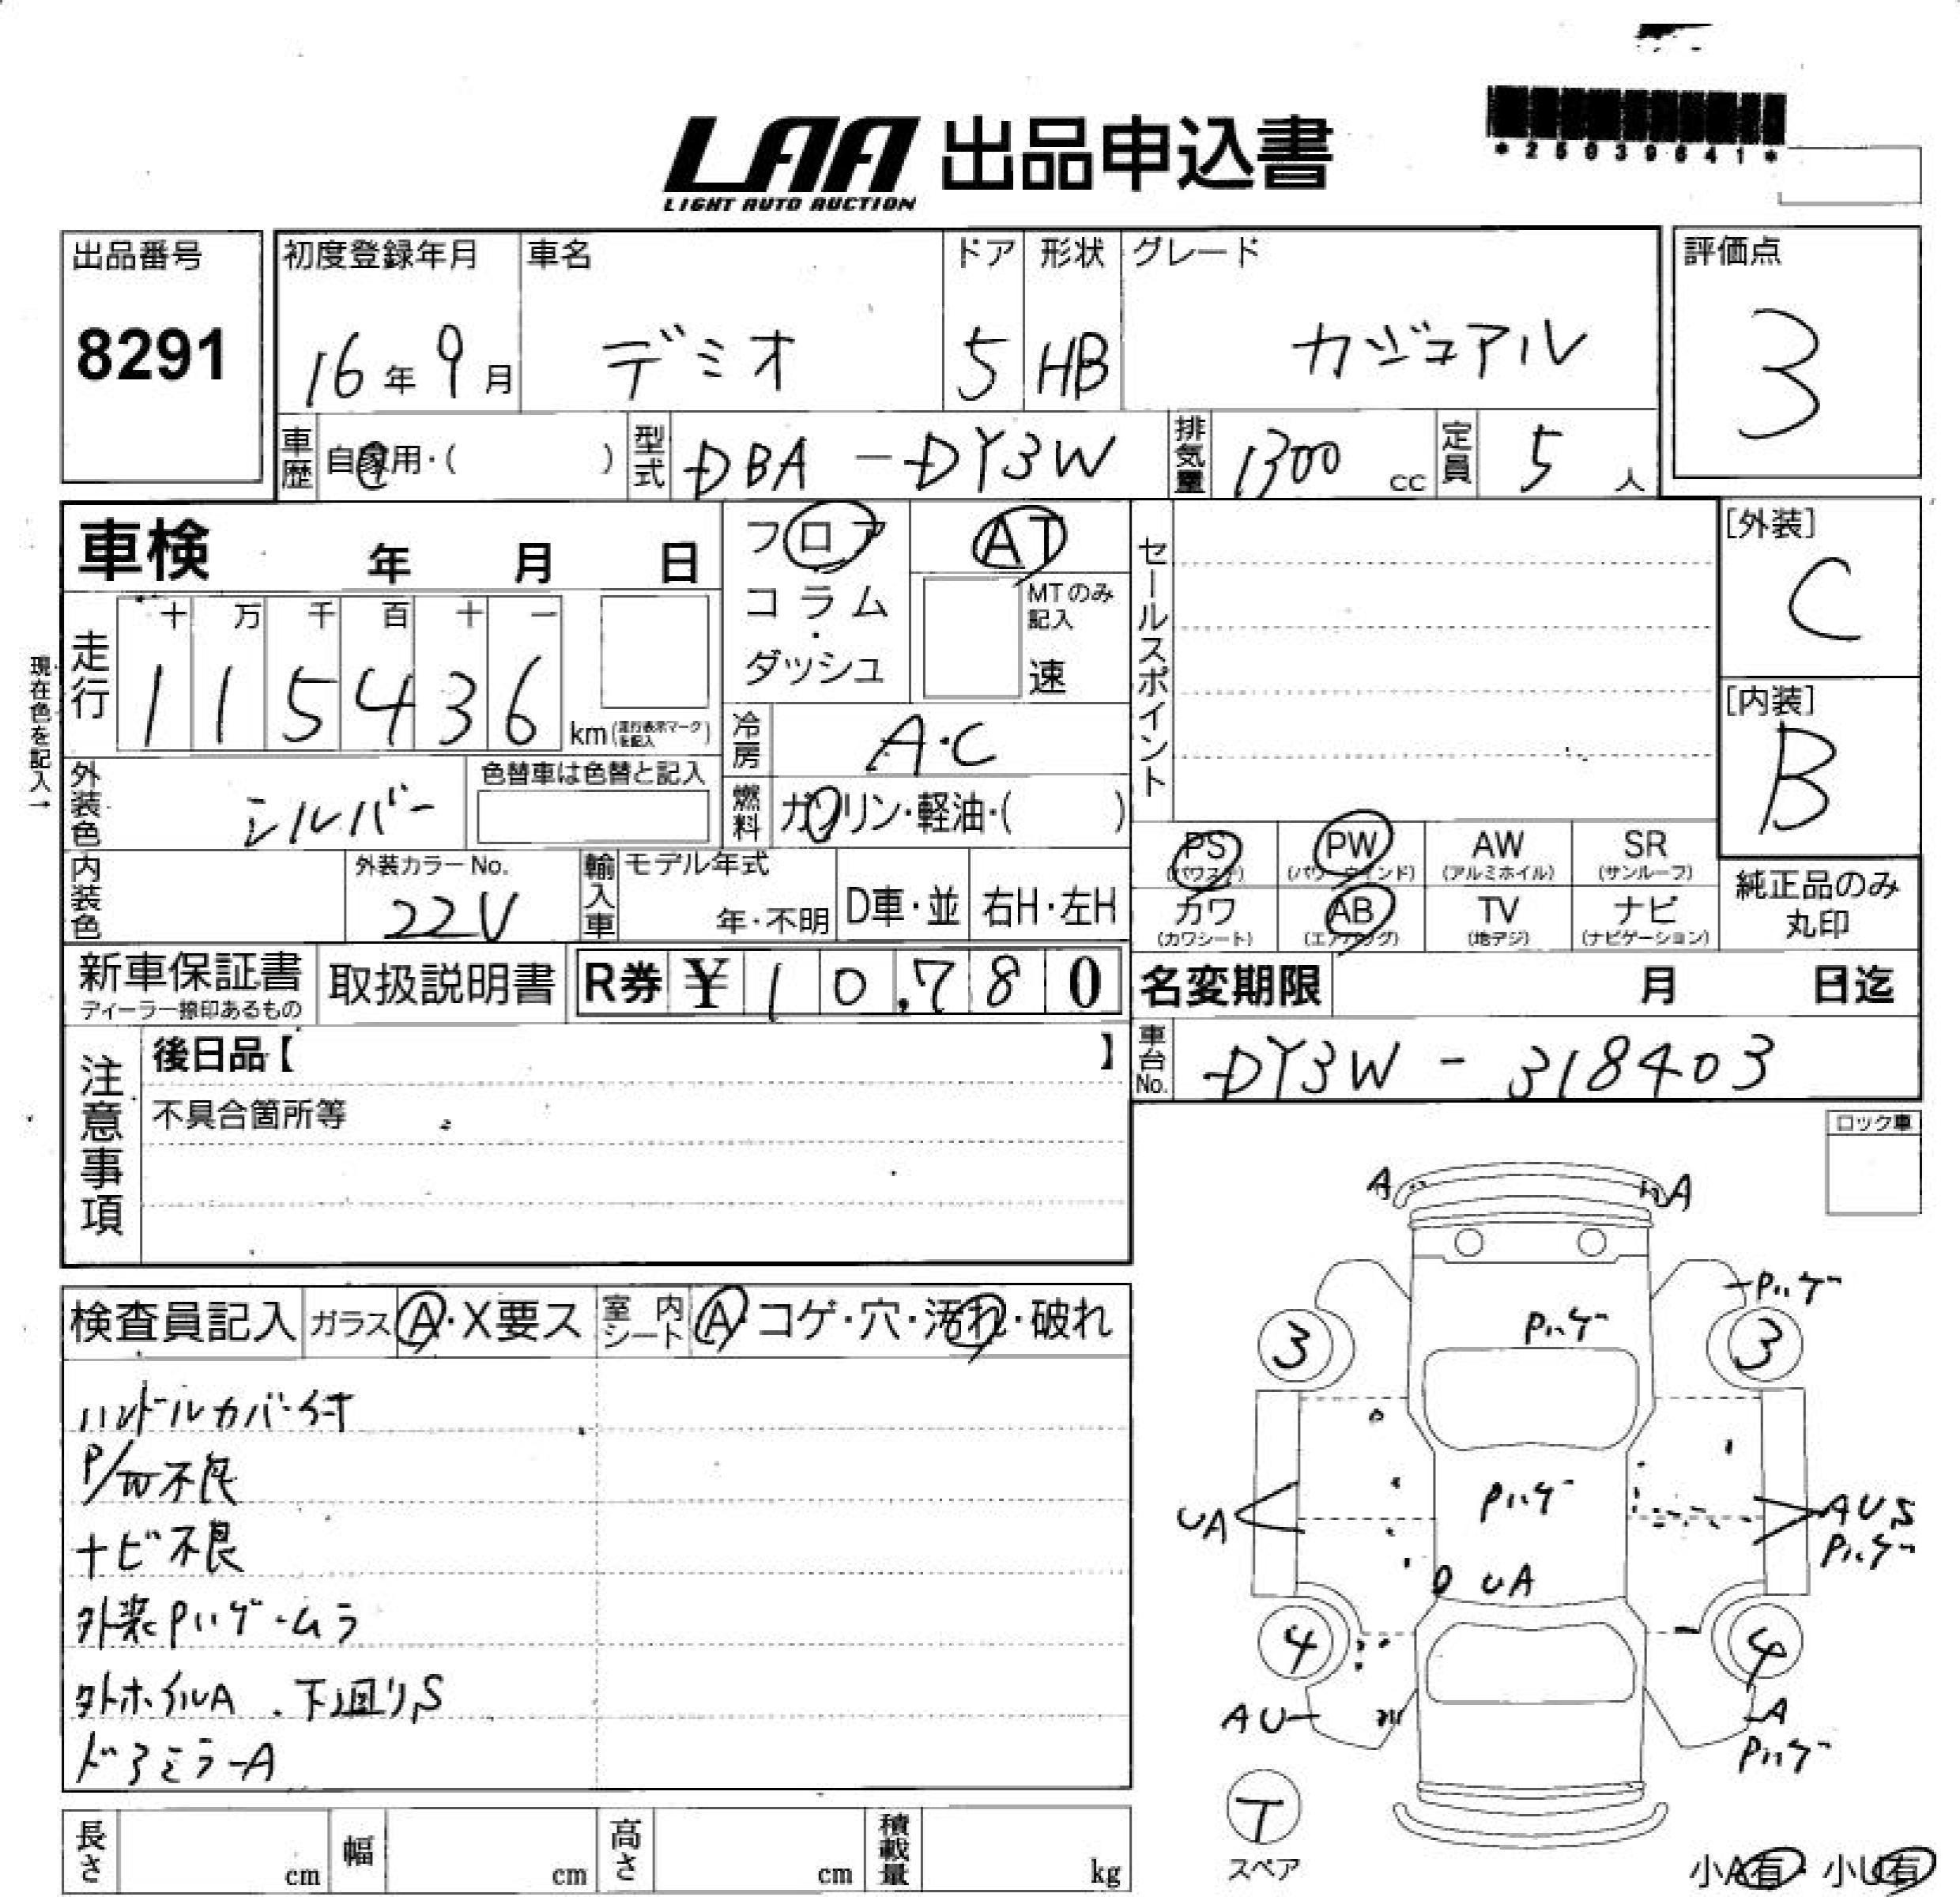 *25039641*
LAA 出品申込書
LIGHT AUTO AUCTION
出品番号
8291
初度登録年月
16年9月
車名
デミオ
ドア
5
形状
HB
グレード
カジュアル
評価点
3
車歴 自家用・( )
型式 DBA-DY3W
排気量 1300 cc
定員 5 人
車検 年 月 日
フロア
コラム
・
ダッシュ
AT
MTのみ
記入
速
セールスポイント
[外装]
C
[内装]
B
現在色を記入→
走行
十 万 千 百 十 一
1 1 5 4 3 6
km(走行表示マークを記入)
冷房 A・C
外装色 シルバー
色替車は色替と記入
燃料 ガソリン・軽油・( )
PS
(パワステ)
PW
(パワーウインド)
AW
(アルミホイル)
SR
(サンルーフ)
カワ
(カワシート)
AB
(エアバッグ)
TV
(地デジ)
ナビ
(ナビゲーション)
純正品のみ
丸印
内装色
外装カラーNo.
22V
輸入車
モデル年式
年・不明
D車・並
右H・左H
新車保証書
ディーラー捺印あるもの
取扱説明書
R券 ¥10,780
名変期限 月 日迄
注意事項
後日品【 】
不具合箇所等
車台No. DY3W-318403
ロック車
検査員記入
ガラス A・X要ス
室内シート A・コゲ・穴・汚れ・破れ
ハンドルカバー付
P/W不良
ナビ不良
外装Pハゲ・ムラ
タトホイルA . 下回りS
ドアミラーA
A
A
Pハゲ
Pハゲ
3
3
UA
Pハゲ
AUS
Pハゲ
UA
4
4
AU
A
Pハゲ
T
スペア
小A有・小U有
長さ cm
幅 cm
高さ cm
積載量 kg